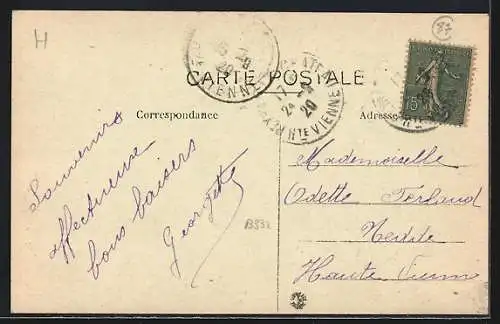 H
CARTE POSTALE
Correspondance
Adresse
Souvenirs
affectueux
bons baisers
Georgette
Mademoiselle
Odette Ferlaud
Nedde
Haute Vienne
15c
17 -4
24
20
HTE VIENNE